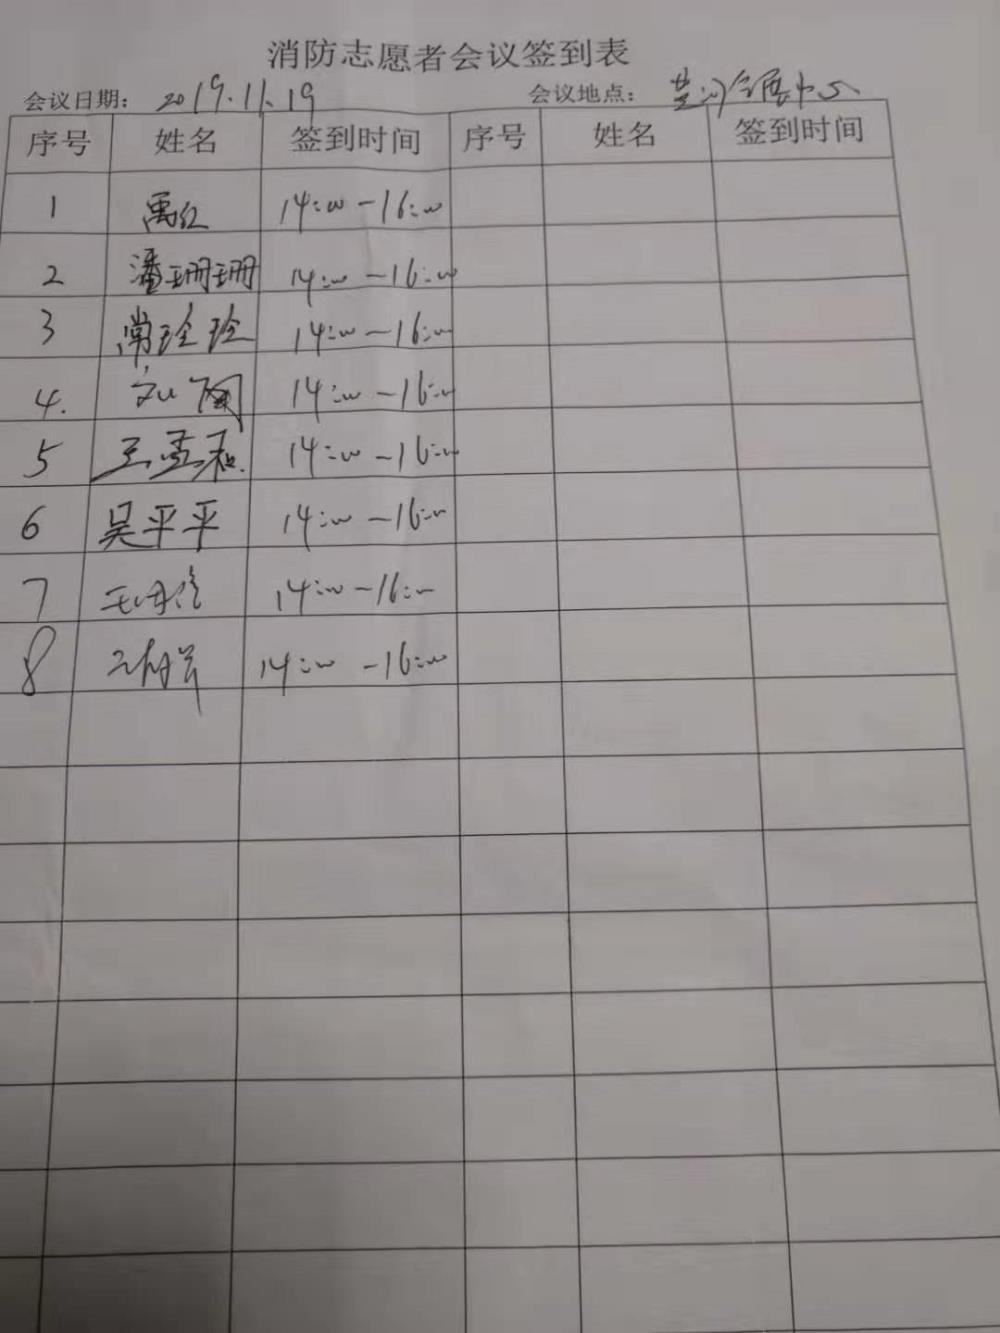 消防志愿者会议签到表
会议日期: 2019.11.19 会议地点: 楚河会展中心
序号 姓名 签到时间 序号 姓名 签到时间
1 禹红 14:00-16:00
2 潘珊珊 14:00-16:00
3 常玲玲 14:00-16:00
4. 14:00-16:00
5 14:00-16:00
6 吴平平 14:00-16:00
7 14:00-16:00
8 14:00-16:00